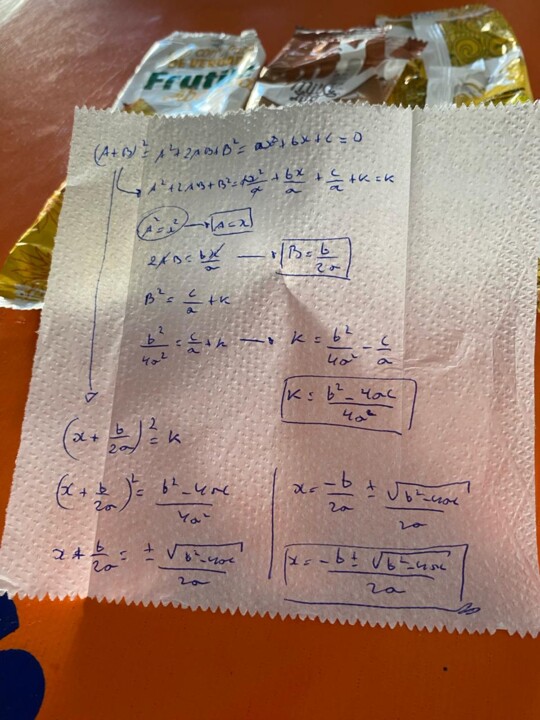 Frutil
(A+B)² = A²+2AB+B² = ax²+bx+c=0
A²+2AB+B² = ax²/a + bx/a + c/a + K = K
A²=x² → A=x
2AB = bx/a → B = b/2a
B² = c/a + K
b²/4a² = c/a + K → K = b²/4a² - c/a
K = b²-4ac/4a²
(x + b/2a)² = K
(x + b/2a)² = b²-4ac/4a²
x + b/2a = ± √b²-4ac/2a
x = -b/2a ± √b²-4ac/2a
x = -b ± √b²-4ac/2a